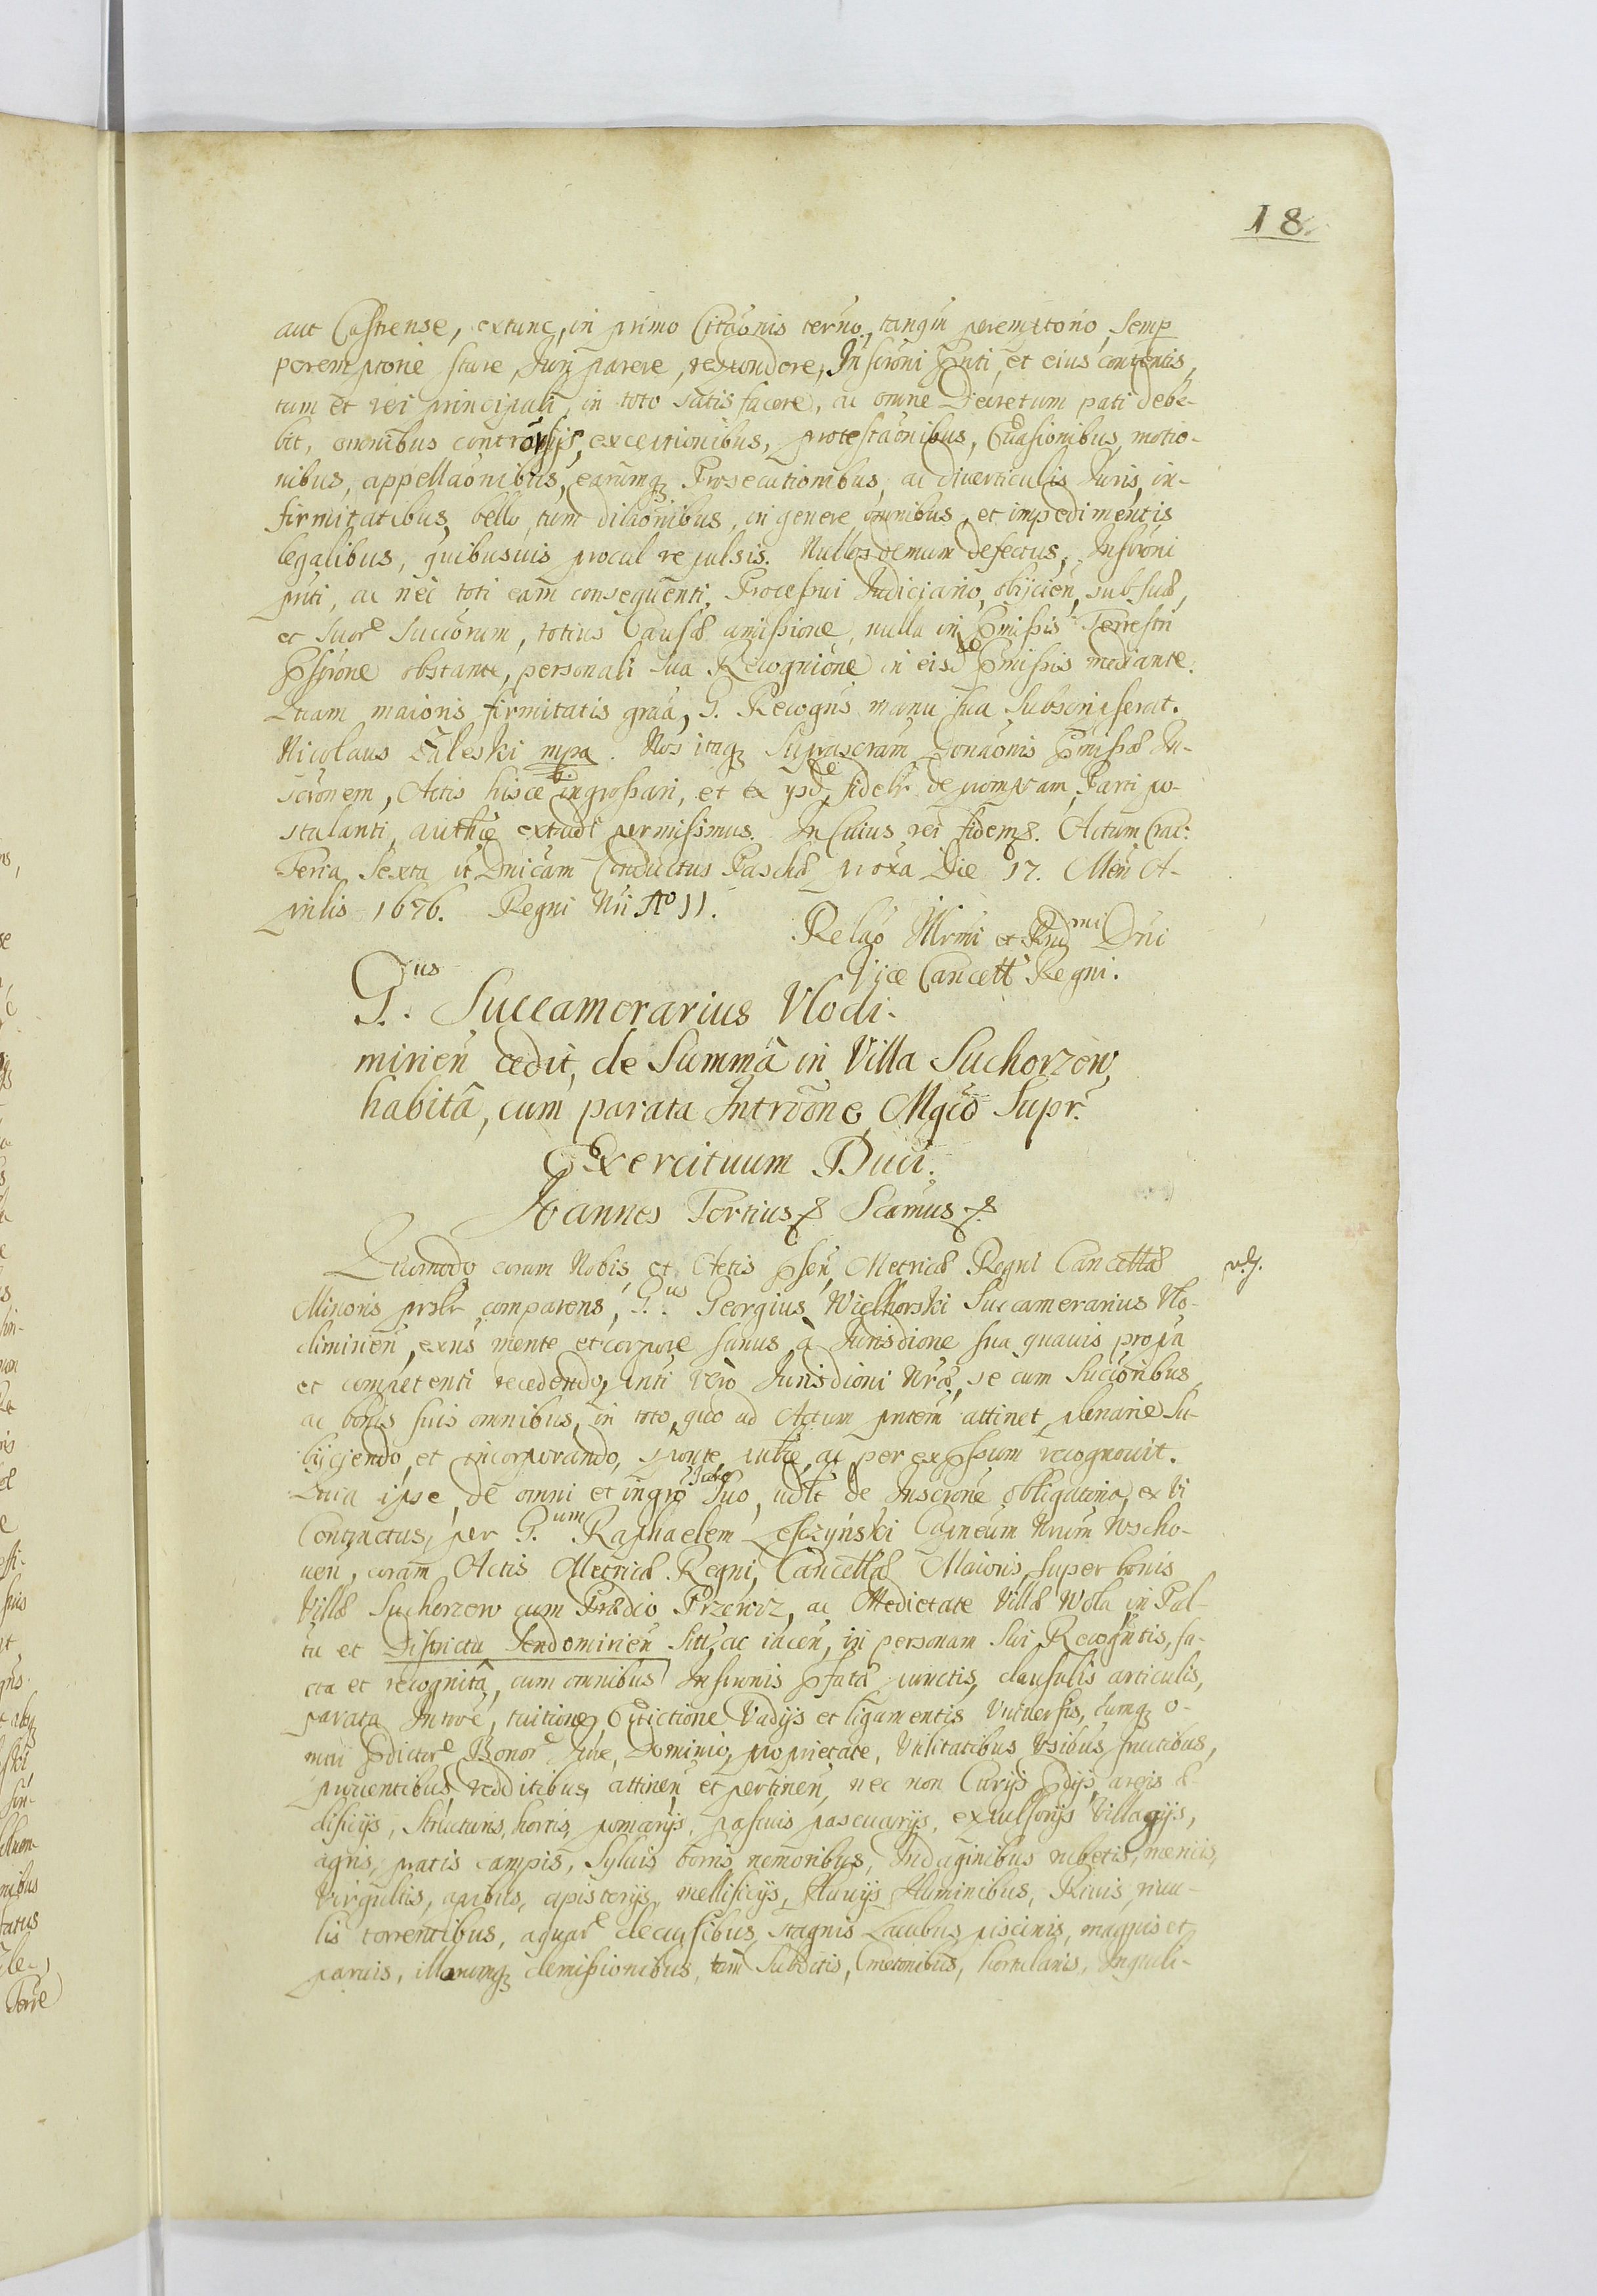 18.
aut Castrense, extunc, in primo Citaõnis termo, tanq̃m peremptorio, semp
peremptorie stare, Juri parere, respondere, Inscrõni p̃nti, et eius contentis,
tum et rei principali, in toto satisfacere, ac omne Decretum pati debe-
bit, omnibus controṽsijs, exceptionibus, protestaõnibus, Evasionibus, motio-
nibus, appellaõnibus, earumq; Prosecutionibus, ac diverticulis Juris, in-
firmitatibus, bello, tum dilaõnibus, in genere omnibus, et impedimentis
legalibus, quibusuis procul repulsis. Nullos demum defectus, Inscrõni
p̃nti, ac nec toti eam̃ consequenti, Processui Judiciario, obijcien̄, sub suæ,
et suor̃ Succorum, totius Causæ amissione, nulla in p̃missis Terrestri
p̃scrõne obstante, personali sua Recognitione in eisd̃ p̃missis mediante.
Quam maioris firmitatis graã, G. Recogn̄s manu sua subscripserat.
Nicolaus Zaleski mpa. Nos itaq; Suprascrãm Donaõnis p̃missæ In-
scrõnem, Actis hisce ingrossari, et ex ijsd̃, fidelr̃ depromptam, Parti po-
stulanti, authẽ extradi permisimus. In Cuius rei fidem &. Actum Crac:
Feria Sexta p̃t Dnicam Conductus Paschæ proxa Die 17. Men̄ A-
prilis 1676. Regni Nr̃i Aº II.
Relaõ Illr̃mi et Rnd̃mi Dñi
Vice Cancell̃ Regni.
G.us Succamerarius Vlodi-
mirien̄ cedit, de Summâ in Villa Suchorzow,
habitâ, cum parata Intrõne, Mgcõ Supr̃.
Exercituum Duci.
Joannes Tertius & Scimus &.
Quomodo coram Nobis, et Actis p̃sen̄, Metricæ Regni Cancellæ
vdj.
Minoris prslr̃ comparens, G.us Georgius Wielhorski Succamerarius Vlo-
dimirien̄, exñs mente et corpore sanus, à Jurisdione sua quauis propa
et competenti recedendo, p̃nti vero Jurisdioni Nr̃æ, se cum Succoribus
ac bonis suis omnibus, in toto, q̃uo ad Actum p̃ntem attinet, plenarie Su-
bijciendo, et incorporando, sponte, publ̃e, ac per exp̃ssum recognouit.
Quia ipse, de omni et ingro Jure Suo, vd̃lt de Inscrone obligatoria, ex vi
Contractus, per G.um Raphaelem Leszczyński Capneum Nr̃um Wscho-
uen̄, coram Actis Metricæ Regni, Cancellæ Maioris, super bonis
Villæ Suchorzow cum Prædio Przewoz, ac Medietate Villæ Wola, in Pal-
tu et Districtu Sendomirien̄ Sitis, ac iacen̄, in personam sui Recogn̄tis, fa-
cta et recognitâ, cum omnibus Inscrõnis p̃fatæ punctis, clausulis articulis,
parata Introe, tuitione, Evictione Vadijs et ligamentis Vniuersis, cumq; o-
mni p̃dictor̃ Bonor̃ Jure, Dominio, proprietate, Vtilitatibus Vsibus, fructibus,
prouentibus, redditibus, attinen̄ et pertinen̄, nec non Curijs p̃dijs, areis æ-
dificijs, Structuris, hortis, pomarijs, pascuis pascuarijs, expulsorijs Villagijs,
agris, pratis campis, Syluis borris, nemoribus, Indaginibus rubetis, mericis,
Virgultis, apibus, apistorijs, mellificijs, fluuijs fluminibus, Riuis, riuu-
lis torrentibus, aquar̃ decursibus, stagnis Lacubus, piscinis, magnis et
paruis, illarumq; demissionibus, tum Subditis, Cmetonibus, hortulanis, Inquili-